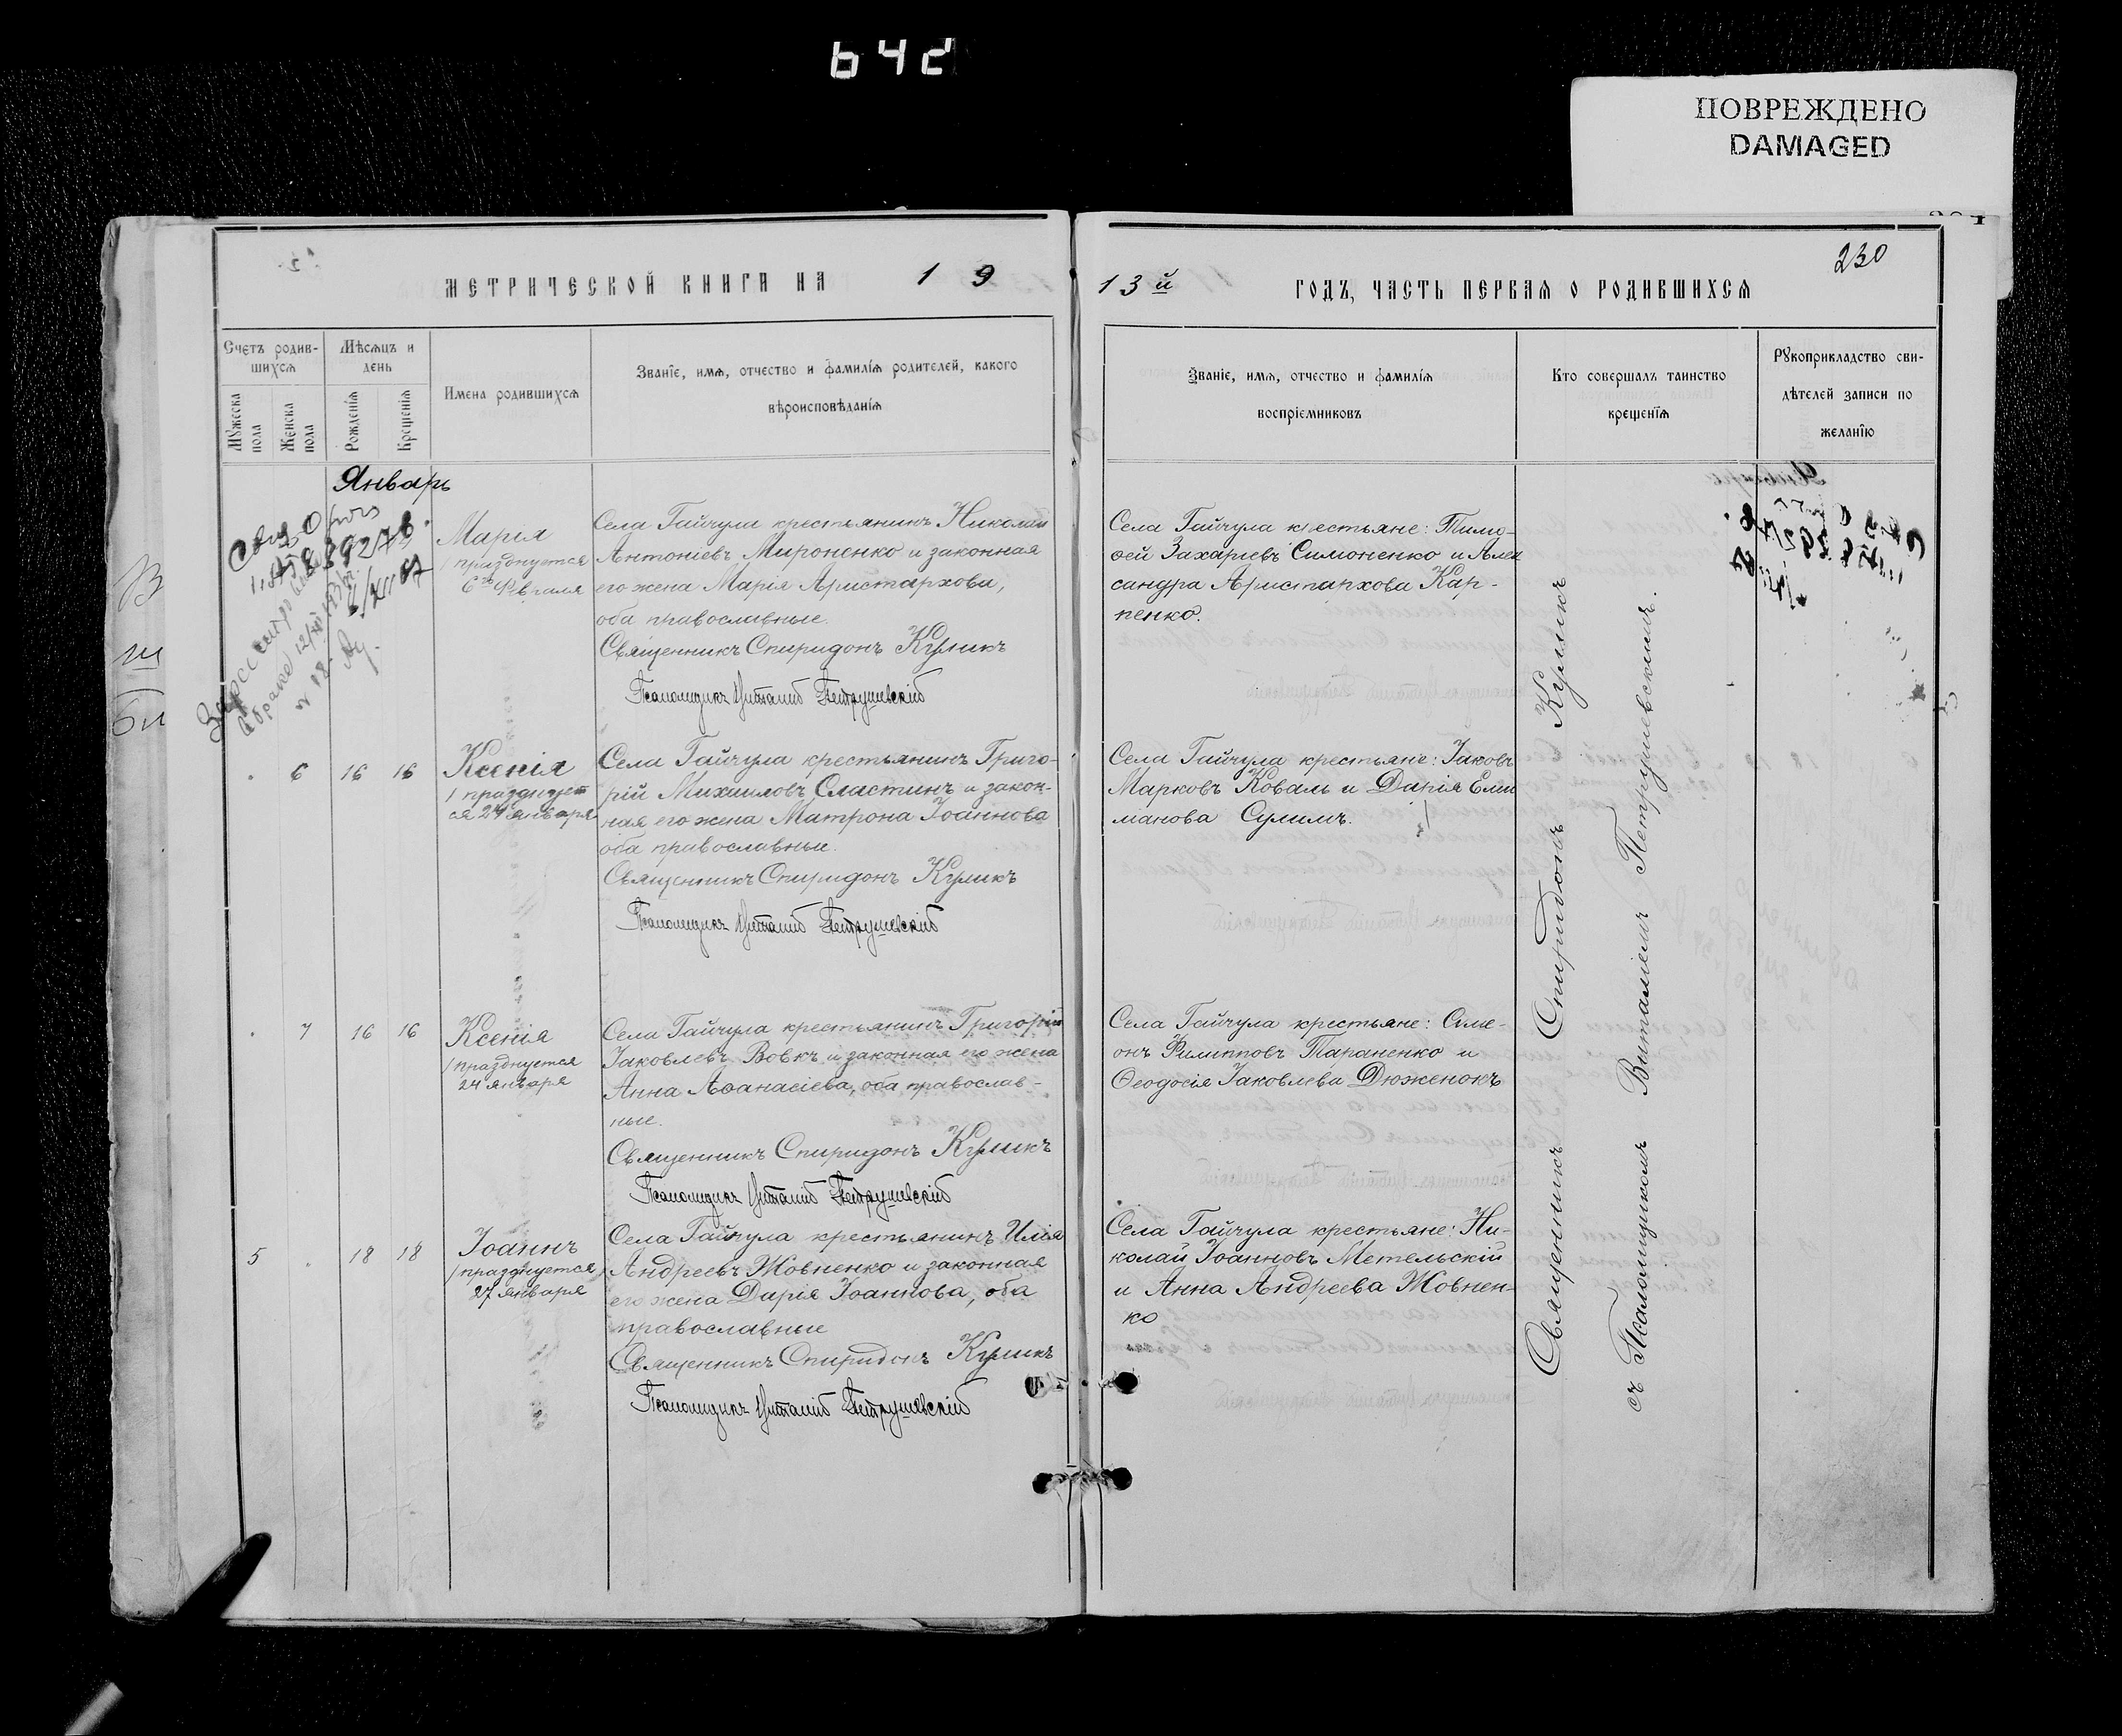 642
ПОВРЕЖДЕНО
DAMAGED
230
МЕТРИЧЕСКОЙ КНИГИ НА 19
13й ГОДЪ, ЧАСТЬ ПЕРВАЯ О РОДИВШИХСЯ
Счетъ родив-
шихся
Мѣсяцъ и
день
Мужеска
пола
Женска
пола
Рожденія
Крещенія
Имена родившихся
Званіе, имя, отчество и фамилія родителей, какого
вѣроисповѣданія
Званіе, имя, отчество и фамилія
воспріемниковъ
Кто совершалъ таинство
крещенія
Рукоприкладство сви-
дѣтелей записи по
желанію
Январь
Марія
празднуется
6го Февраля
Села Гайчула крестьянинъ Николай
Антоніевъ Мироненко и законная
его жена Марія Аристархова,
оба православные.
Священникъ Спиридонъ Куликъ
Псаломщикъ Виталій Петрушевскій
Села Гайчула крестьяне: Тимо-
ѳей Захаріевъ Симоненко и Алек
сандра Аристархова Кар-
пенко.
6 16 16
Ксенія
/празднует
ся 24 января
Села Гайчула крестьянинъ Григо-
рій Михаиловъ Сластинъ и закон-
ная его жена Матрона Іоаннова
оба православные.
Священникъ Спиридонъ Куликъ
Псаломщикъ Виталій Петрушевскій
Села Гайчула крестьяне: Іаковъ
Марковъ Коваль и Дарія Ели
манова Сулимъ.
7 16 16
Ксенія
/празднуется
24 января
Села Гайчула крестьянинъ Григорій
Іаковлевъ Вовкъ и законная его жена
Анна Аѳанасіева, оба православ-
ные.
Священникъ Спиридонъ Куликъ
Псаломщикъ Виталій Петрушевскій
Села Гайчула крестьяне: Симе-
онъ Филипповъ Тараненко и
Ѳеодосія Іаковлева Дюженокъ
5 18 18
Іоаннъ
/празднуется/
27 января
Села Гайчула крестьянинъ Илія
Андреевъ Жовненко и законная
его жена Дарія Іоаннова, оба
православные
Священникъ Спиридонъ Куликъ
Псаломщикъ Виталій Петрушевскій
Села Гайчула крестьяне: Ни-
колай Іоанновъ Метельскій
и Анна Андреева Жовнен-
ко
Священникъ Спиридонъ Куликъ
съ Псаломщикомъ Виталіемъ Петрушевскимъ.